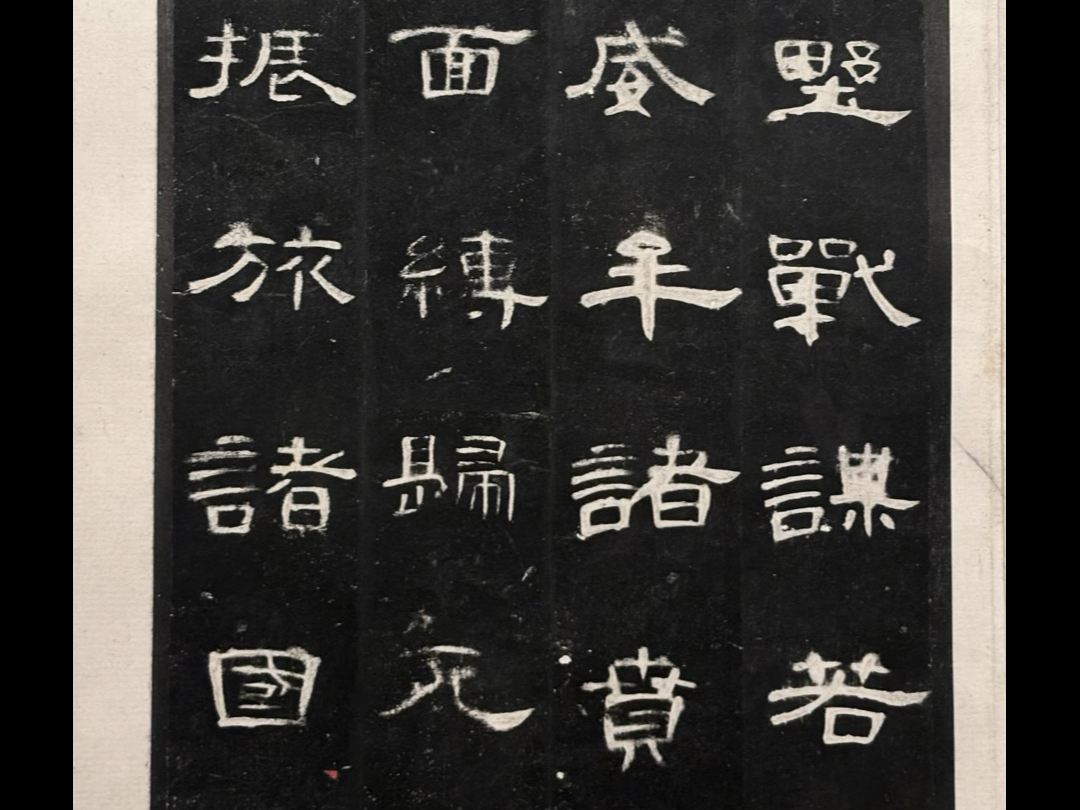 野戰謀若
威牟諸賁
面縛歸死
振旅諸國